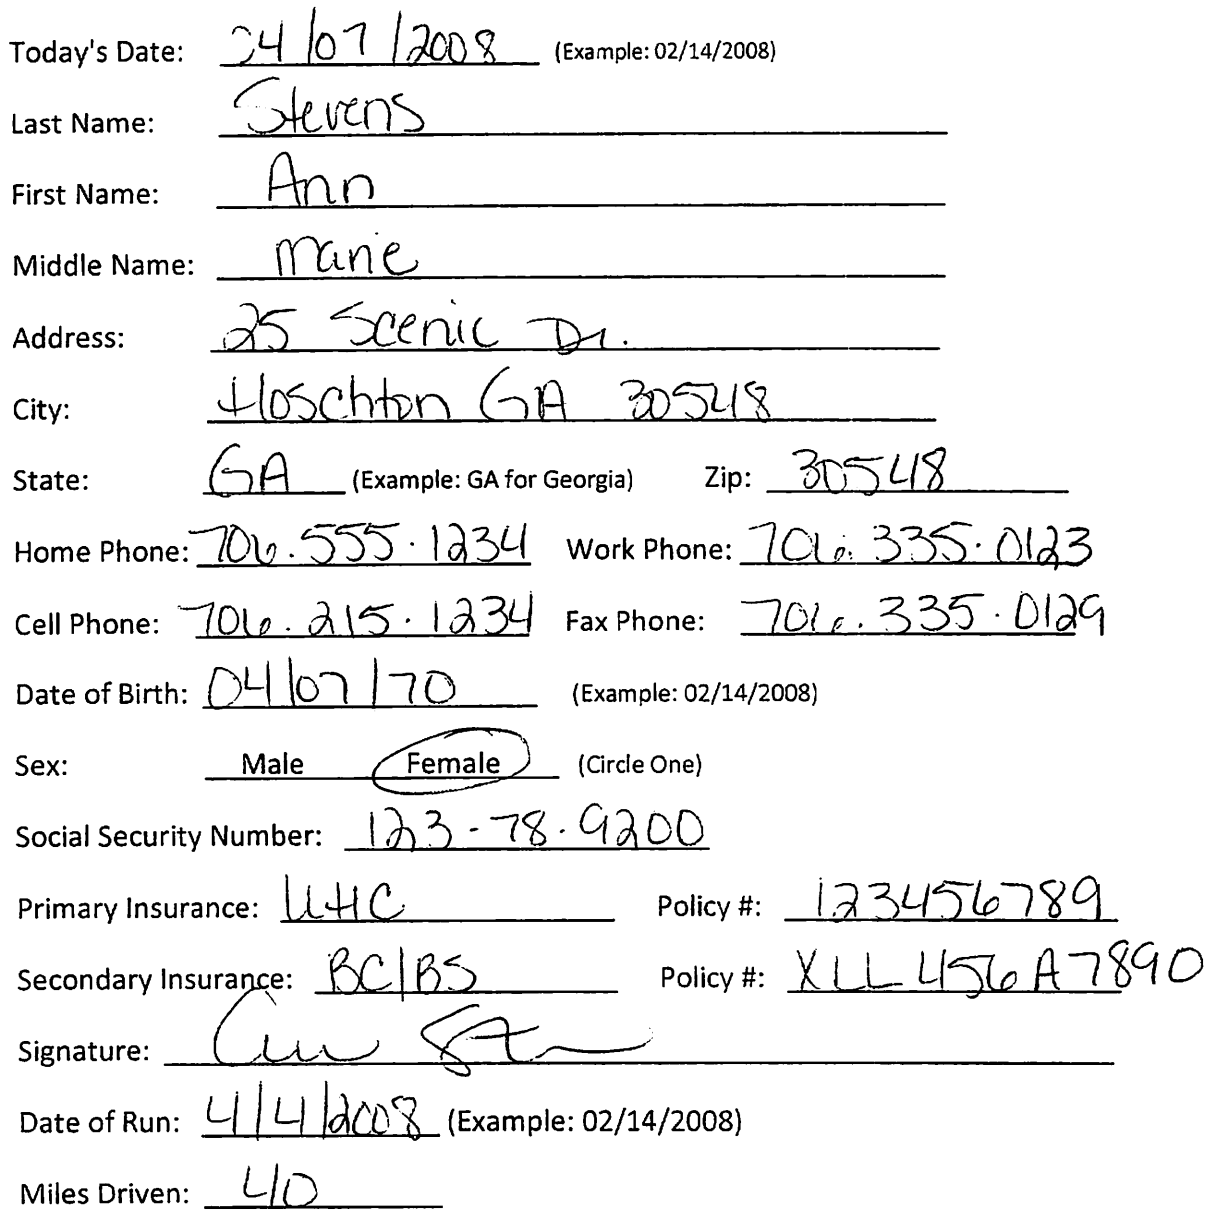 Today's Date: 04/07/2008 (Example: 02/14/2008)
Last Name: Stevens
First Name: Ann
Middle Name: Marie
Address: 25 Scenic Dr.
City: Hoschton GA 30548
State: GA (Example: GA for Georgia) Zip: 30548
Home Phone: 706.555.1234 Work Phone: 706.335.0123
Cell Phone: 706.215.1234 Fax Phone: 706.335.0129
Date of Birth: 04/07/70 (Example: 02/14/2008)
Sex: Male Female (Circle One)
Social Security Number: 123-78.9200
Primary Insurance: UHC Policy #: 123456789
Secondary Insurance: BC/BS Policy #: XLL456A7890
Signature:
Date of Run: 4/4/2008 (Example: 02/14/2008)
Miles Driven: 40